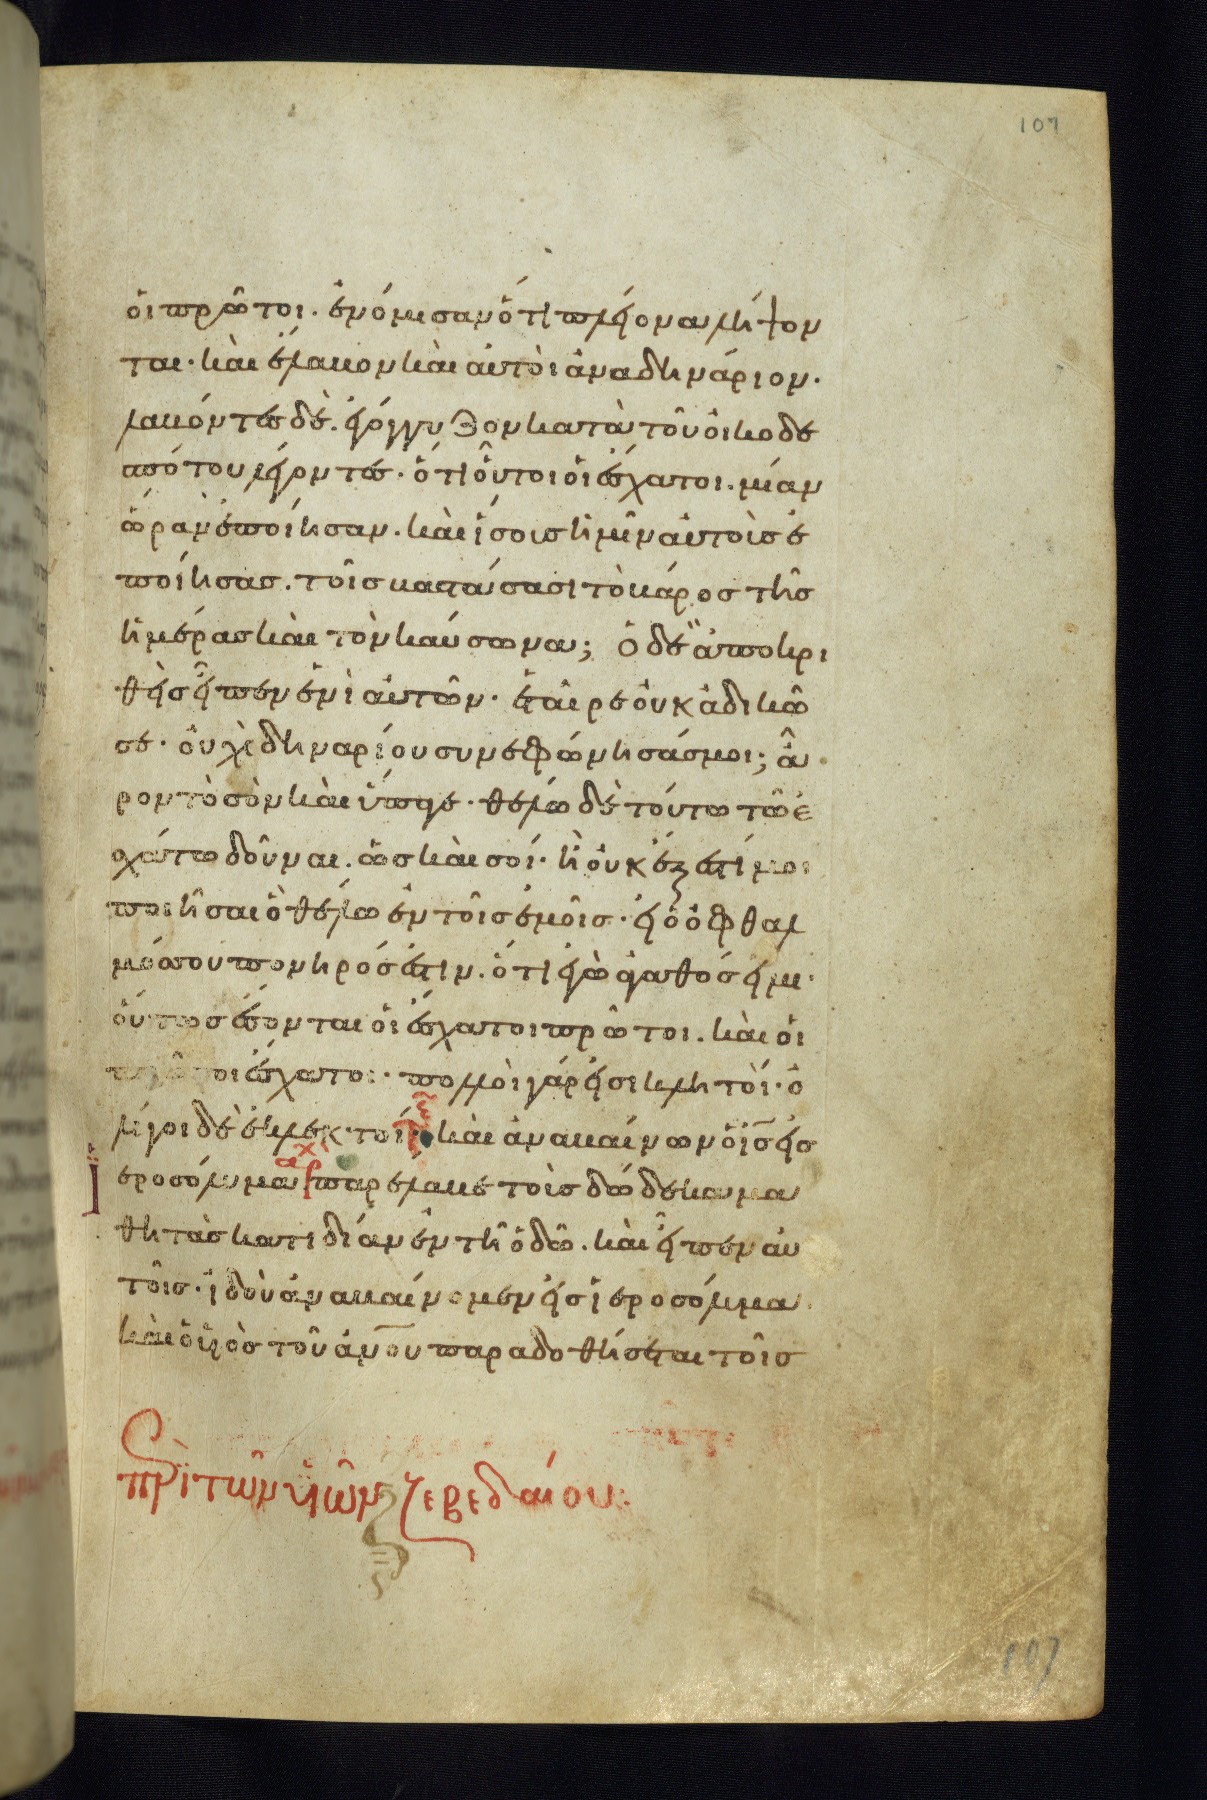 107
οἱ πρῶτοι. ἐνόμισαν ὅτι πλείονα λήψον
ται· καὶ ἔλαβον καὶ αὐτοὶ ἀνα δηνάριον·
λαβόντες δὲ. ἐγόγγυζον κατὰ τοῦ οἰκοδε
σπότου λέγοντες· ὅτι οὗτοι οἱ ἔσχατοι. μίαν
ὥραν ἐποίησαν. καὶ ἴσους ἡμῖν αὐτοὺς ἐ
ποίησας. τοῖς βαστάσασι τὸ βάρος τῆς
ἡμέρας καὶ τὸν καύσωνα; Ὁ δὲ ἀποκρι
θεὶς εἶπεν ἑνὶ αὐτῶν· ἑταῖρε οὐκ ἀδικῶ
σε· οὐχὶ δηναρίου συνεφώνησάς μοι; ἆ
ρον τὸ σὸν καὶ ὕπαγε· θέλω δὲ τούτω τῶ ἐ
σχάτω δοῦναι. ὡς καὶ σοί· ἢ οὐκ ἔξεστί μοι
ποιῆσαι ὃ θέλω ἐν τοῖς ἐμοῖς· εἰ ὁ ὀφθαλ
μός σου πονηρός ἐστιν. ὅτι ἐγὼ ἀγαθός εἰμι·
οὕτως ἔσονται οἱ ἔσχατοι πρῶτοι. καὶ οἱ
πρῶτοι ἔσχατοι· πολλοὶ γάρ εἰσι κλητοὶ· ὀ
λίγοι δὲ ἐκλεκτοί· καὶ ἀναβαίνων ὁ ι̅ς̅ εἰς
ἱεροσόλυμα παρέλαβε τοὺς δώδεκα μα
θητὰς κατιδίαν ἐν τῆ ὁδῶ. καὶ εἶπεν αὐ
τοῖς· ἰδοὺ ἀναβαίνομεν εἰς ἱεροσόλυμα
καὶ ὁ υἱὸς τοῦ ἀν̅ου παραδοθήσεται τοῖς
πρὶ τῶν υἱῶν ζεβεδαίου:
107